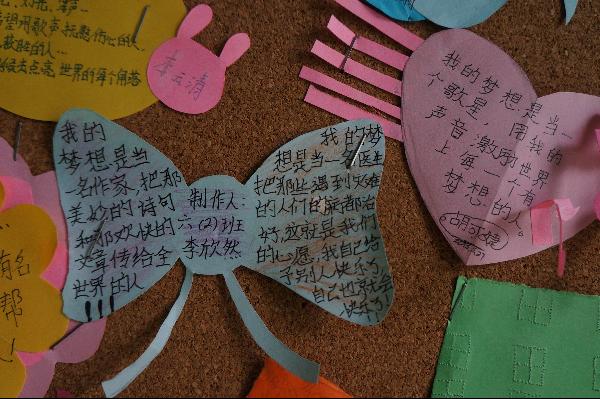 希望用歌声抚慰伤心的人
世界的每个角落
李云清
我的
梦想是当
一名作家,把那
美妙的诗句
和那欢快的
文章传给全
世界的人
!!!
制作人:
六(2)班
李欣然
我的梦
想是当一名医生
把那些遇到灾难
的人们的病都治
好,这就是我们
的心愿,我自己给
予别人快乐了,
自己也就会
快乐了
我的梦想是当一
个歌星,用我的
声音激励世界
上每一个有
梦想的人。
胡可婕
有名
帮
人!